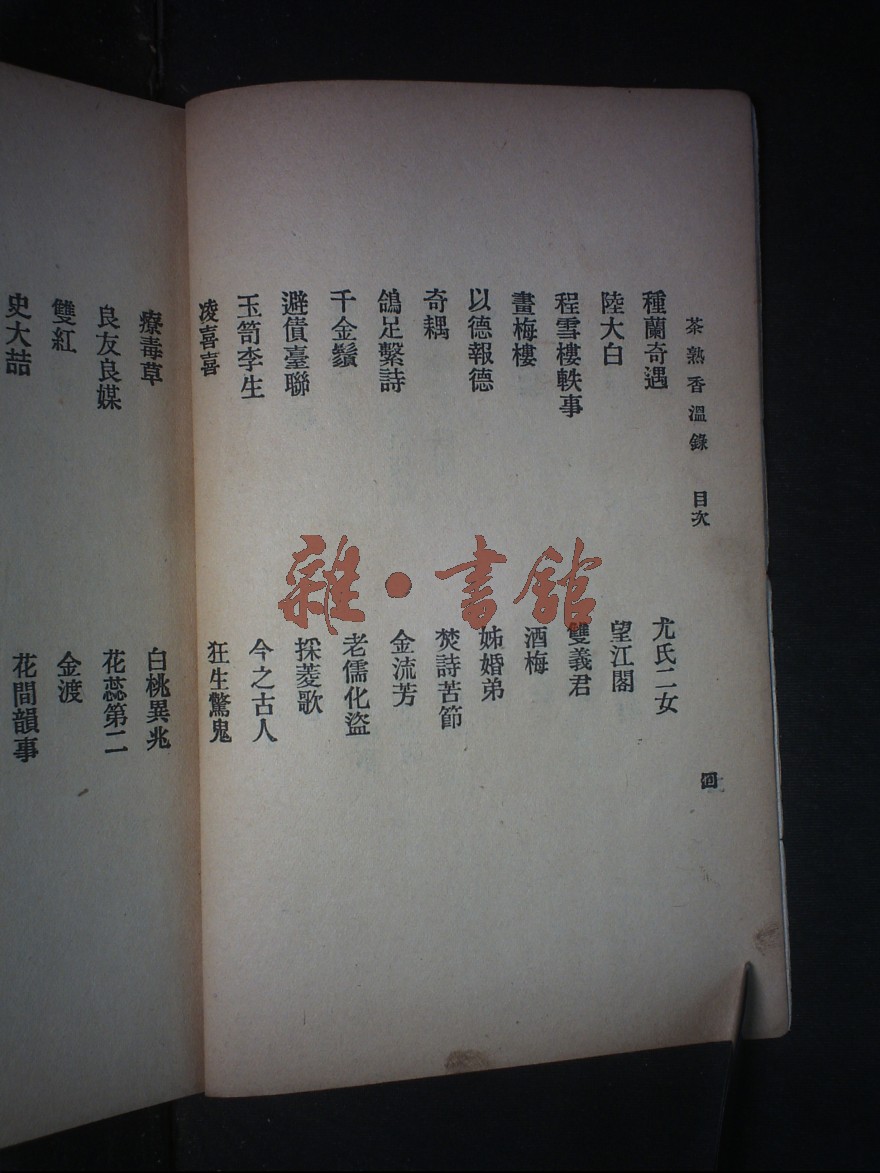 茶熟香溫錄 目次
四
種蘭奇遇
尤氏二女
陸大白
望江閣
程雪樓軼事
雙義君
畫梅樓
酒梅
以德報德
姊婚弟
奇耦
焚詩苦節
鴿足繫詩
金流芳
千金鬚
老儒化盜
避債臺聯
採菱歌
玉笥李生
今之古人
凌喜喜
狂生驚鬼
療毒草
白桃異兆
良友良媒
花蕊第二
雙紅
金渡
史大喆
花間韻事
雜·書館